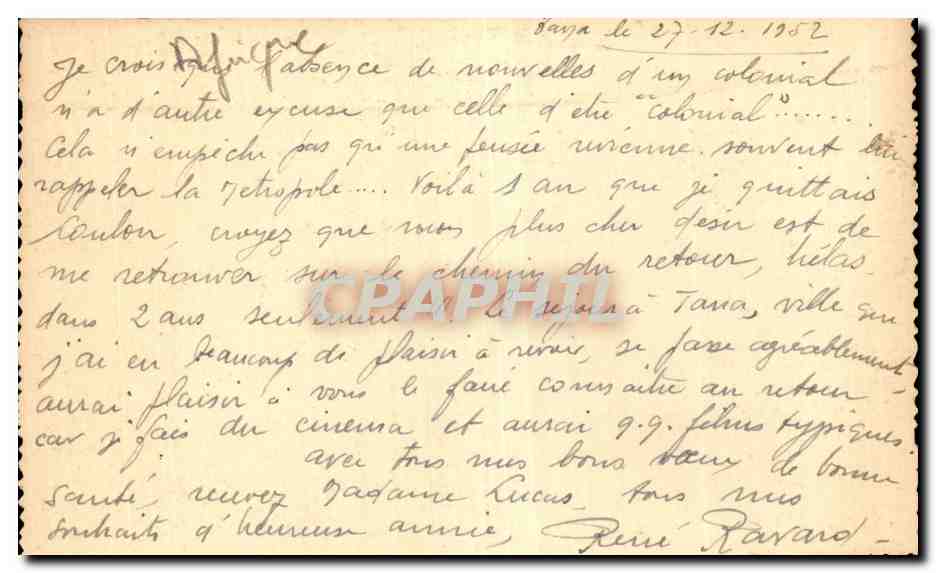 Tana le 27-12-1952
Afrique
Je crois que l'absence de nouvelles d'un colonial
n'a d'autre excuse que celle d'être "colonial".......
Cela n'empêche pas qu'une pensée vienne souvent lui
rappeler la Métropole.... Voilà 1 an que je quittais
Toulon, croyez que mon plus cher désir est de
me retrouver sur le chemin du retour, hélas
dans 2 ans seulement. Le séjour à Tana, ville que
j'ai eu beaucoup de plaisir à revoir, se passe agréablement
aurai plaisir à vous le faire connaître au retour -
car je fais du cinema et aurai q.q. films typiques
avec tous mes bons vœux de bonne
santé, recevez Madame Lucas, tous mes
souhaits d'heureuse année,
René Ravard -
CPAPHIL